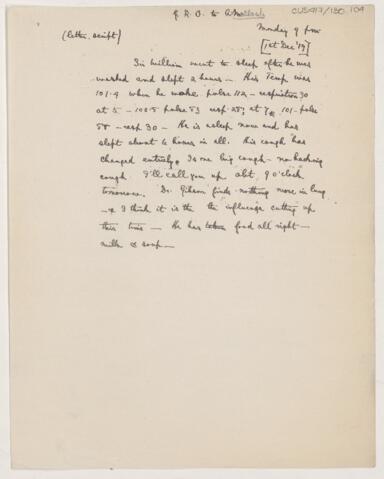 G.R.O. to A Malloch CUS417/180.104
(letter, script)
Monday 9 pm
[1st Dec '19]
Sir William went to sleep after he was
washed and slept 2 hours — His Temp was
101.4 when he woke pulse 112 — respiration 30
at 5 — 100.5 pulse 53 resp 25; at 7 101 — pulse
58 — resp 30 — He is asleep now and has
slept about 6 hours in all. His cough has
changed entirely. Is one big cough — no hacking
cough. I'll call you up abt. 9 o'clock
tomorrow. Dr. Gibson finds nothing more in lung
— & I think it is the influenza cutting up
this time — He has taken food all right —
milk & soup —